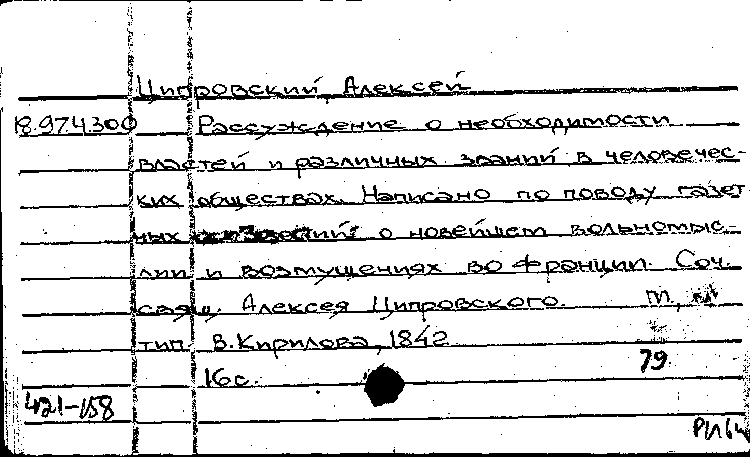 Ципровский, Алексей
18.974.300 Рассуждение о необходимости
властей и различных званий в человечес-
ких обществах. Написано по поводу газет
ных о новейшем вольномыс-
лии и возмущениях во Франции. Соч.
свящ. Алексея Ципровского. М.,
тип. В. Кирилова, 1842
79
16 с.
421-158